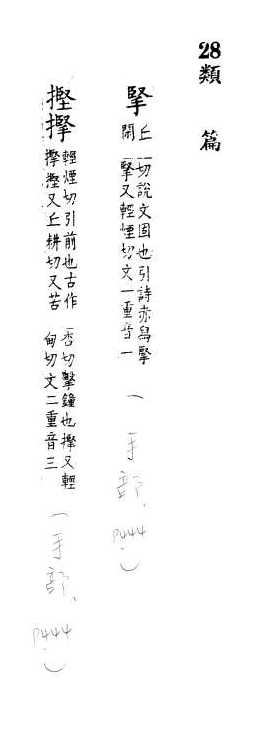 28 類篇
掔
丘
閑
切說文固也引詩赤舄掔
掔又輕煙切文一重音一
(手部, P444.)
摼
輕煙切引前也古作
摼又丘耕切又苦
杏切擊鐘也 又輕
甸切文二重音三
(手部, P444.)